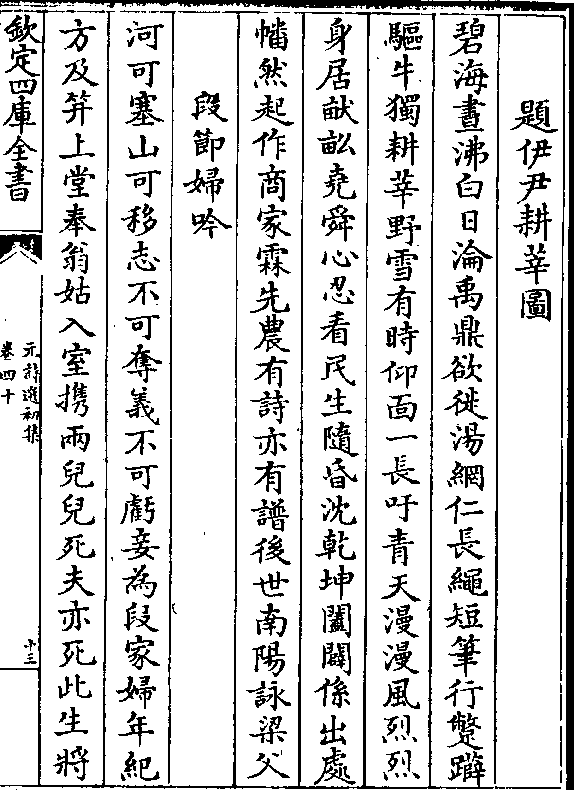 題伊尹耕莘圖
碧海晝沸白日淪禹鼎欲徙湯網仁長繩短筆行蹩躃
驅牛獨耕莘野雪有時仰面一長吁青天漫漫風烈烈
身居畎畝堯舜心忍看民生隨昏沈乾坤闔闢係出處
幡然起作商家霖先農有詩亦有譜後世南陽詠梁父
段節婦吟
河可塞山可移志不可奪義不可虧妾為段家婦年紀
方及笄上堂奉翁姑入室攜兩兒兒死夫亦死此生將
欽定四庫全書
元詩選初集
卷四十
十三